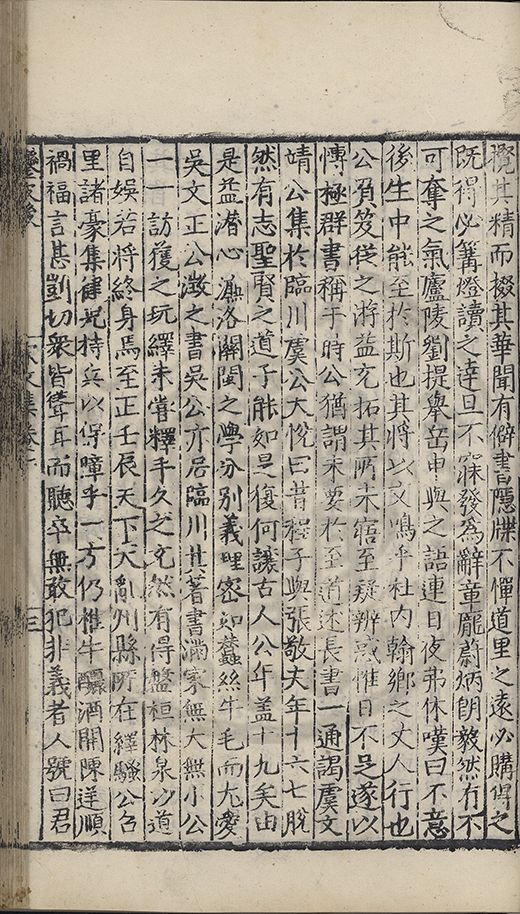 攬其精而掇其華聞有僻書隱牒不憚道里之遠必購得之
既得必篝燈讀之達旦不寐發為辭章龐蔚炳朗毅然有不
可奪之氣廬陵劉提舉岳申與之語連日夜弗休嘆曰不意
後生中能至於斯也其將以文鳴乎杜內翰鄉之丈人行也
公負笈從之游益充拓其所未寤至疑辨惑惟日不足遂以
慱極群書稱于時公猶謂未要於至道述長書一通謁虞文
靖公集於臨川虞公大悅曰昔程子與張敬夫年十六七脫
然有志聖賢之道子能如是復何讓古人公年盖十九矣由
是益潜心濂洛關閩之學分別義理密如蠶絲牛毛而尤愛
吳文正公澂之書吳公亦居臨川其著書滿家無大無小公
一一訪獲之玩繹未嘗釋手久之充然有得盤桓林泉以道
自娛若將終身焉至正壬辰天下大亂州縣所在繹騷公召
里諸豪集健兒持兵以保障乎一方仍椎牛釃酒開陳逆順
禍福言甚剴切衆皆聳耳而聽卒無敢犯非義者人號曰君
三